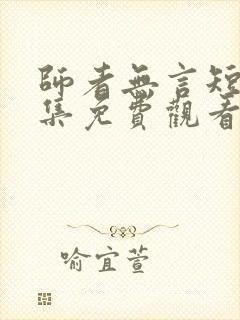 師者無言短
集免費觀看
喻宜萱